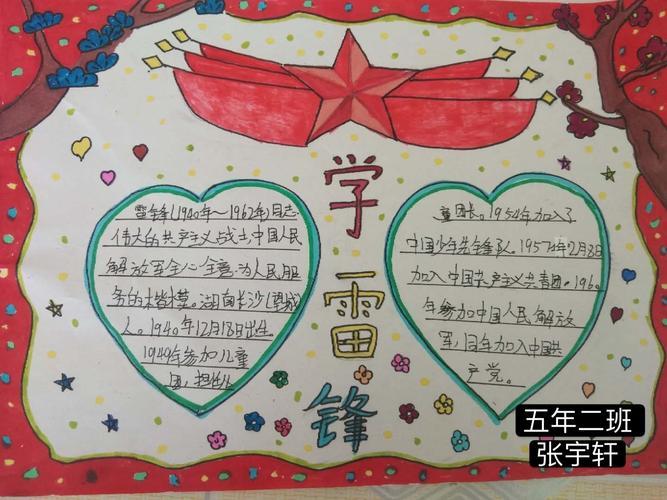 学
雷
锋
雷锋(1940年~1962年)同志
伟大的共产主义战士,中国人民
解放军全心全意为人民服
务的楷模。湖南长沙(望城
人。1940年12月18日出生
1949年参加儿童
团,担任
童团长。1954年加入了
中国少年先锋队。1957年2月8日
加入中国共产主义共青团。1960
年参加中国人民解放
军,同年加入中国共
产党。
五年二班
张宇轩